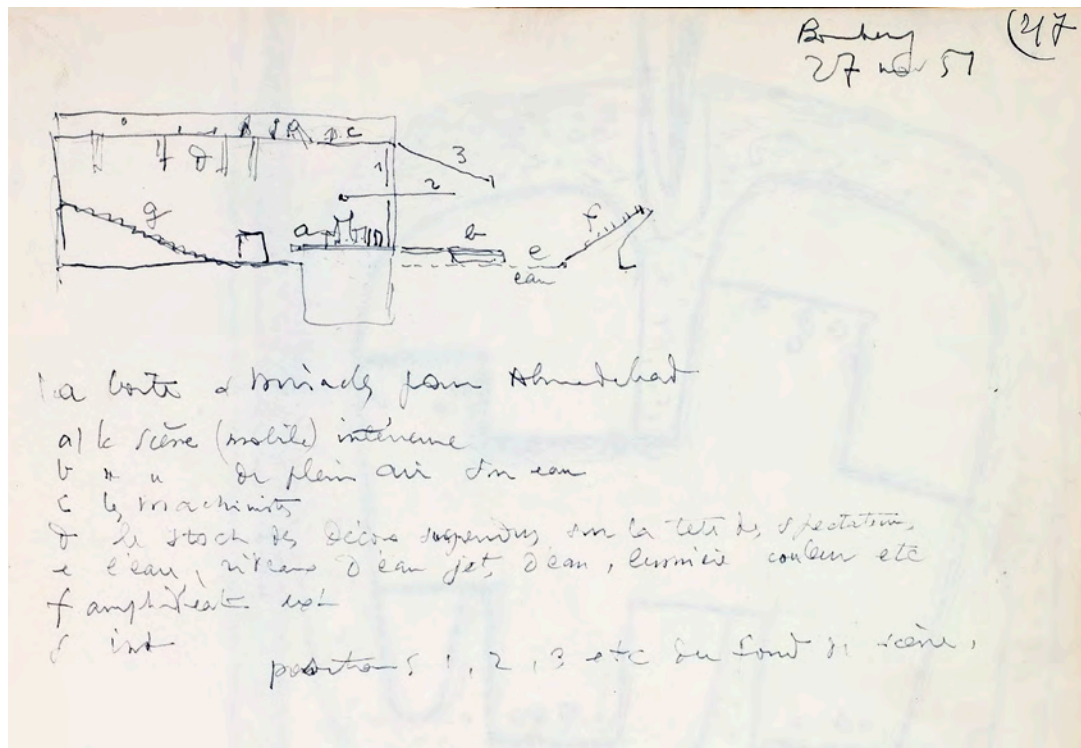 Bombay (217
27 nov 51
c
3
1
d
2
g
f
a
b
e
eau
la boite a miracles pour Ahmedabad
a) la scène (mobile) intérieure
b " " de plein air sur eau
c les machinistes
d le stock des décors suspendus sur la tête des spectateurs
e l'eau, rideaux d'eau jets d'eau, lumière couleur etc
f amphithéatre ext
g int
positions 1, 2, 3 etc du fond de scène,